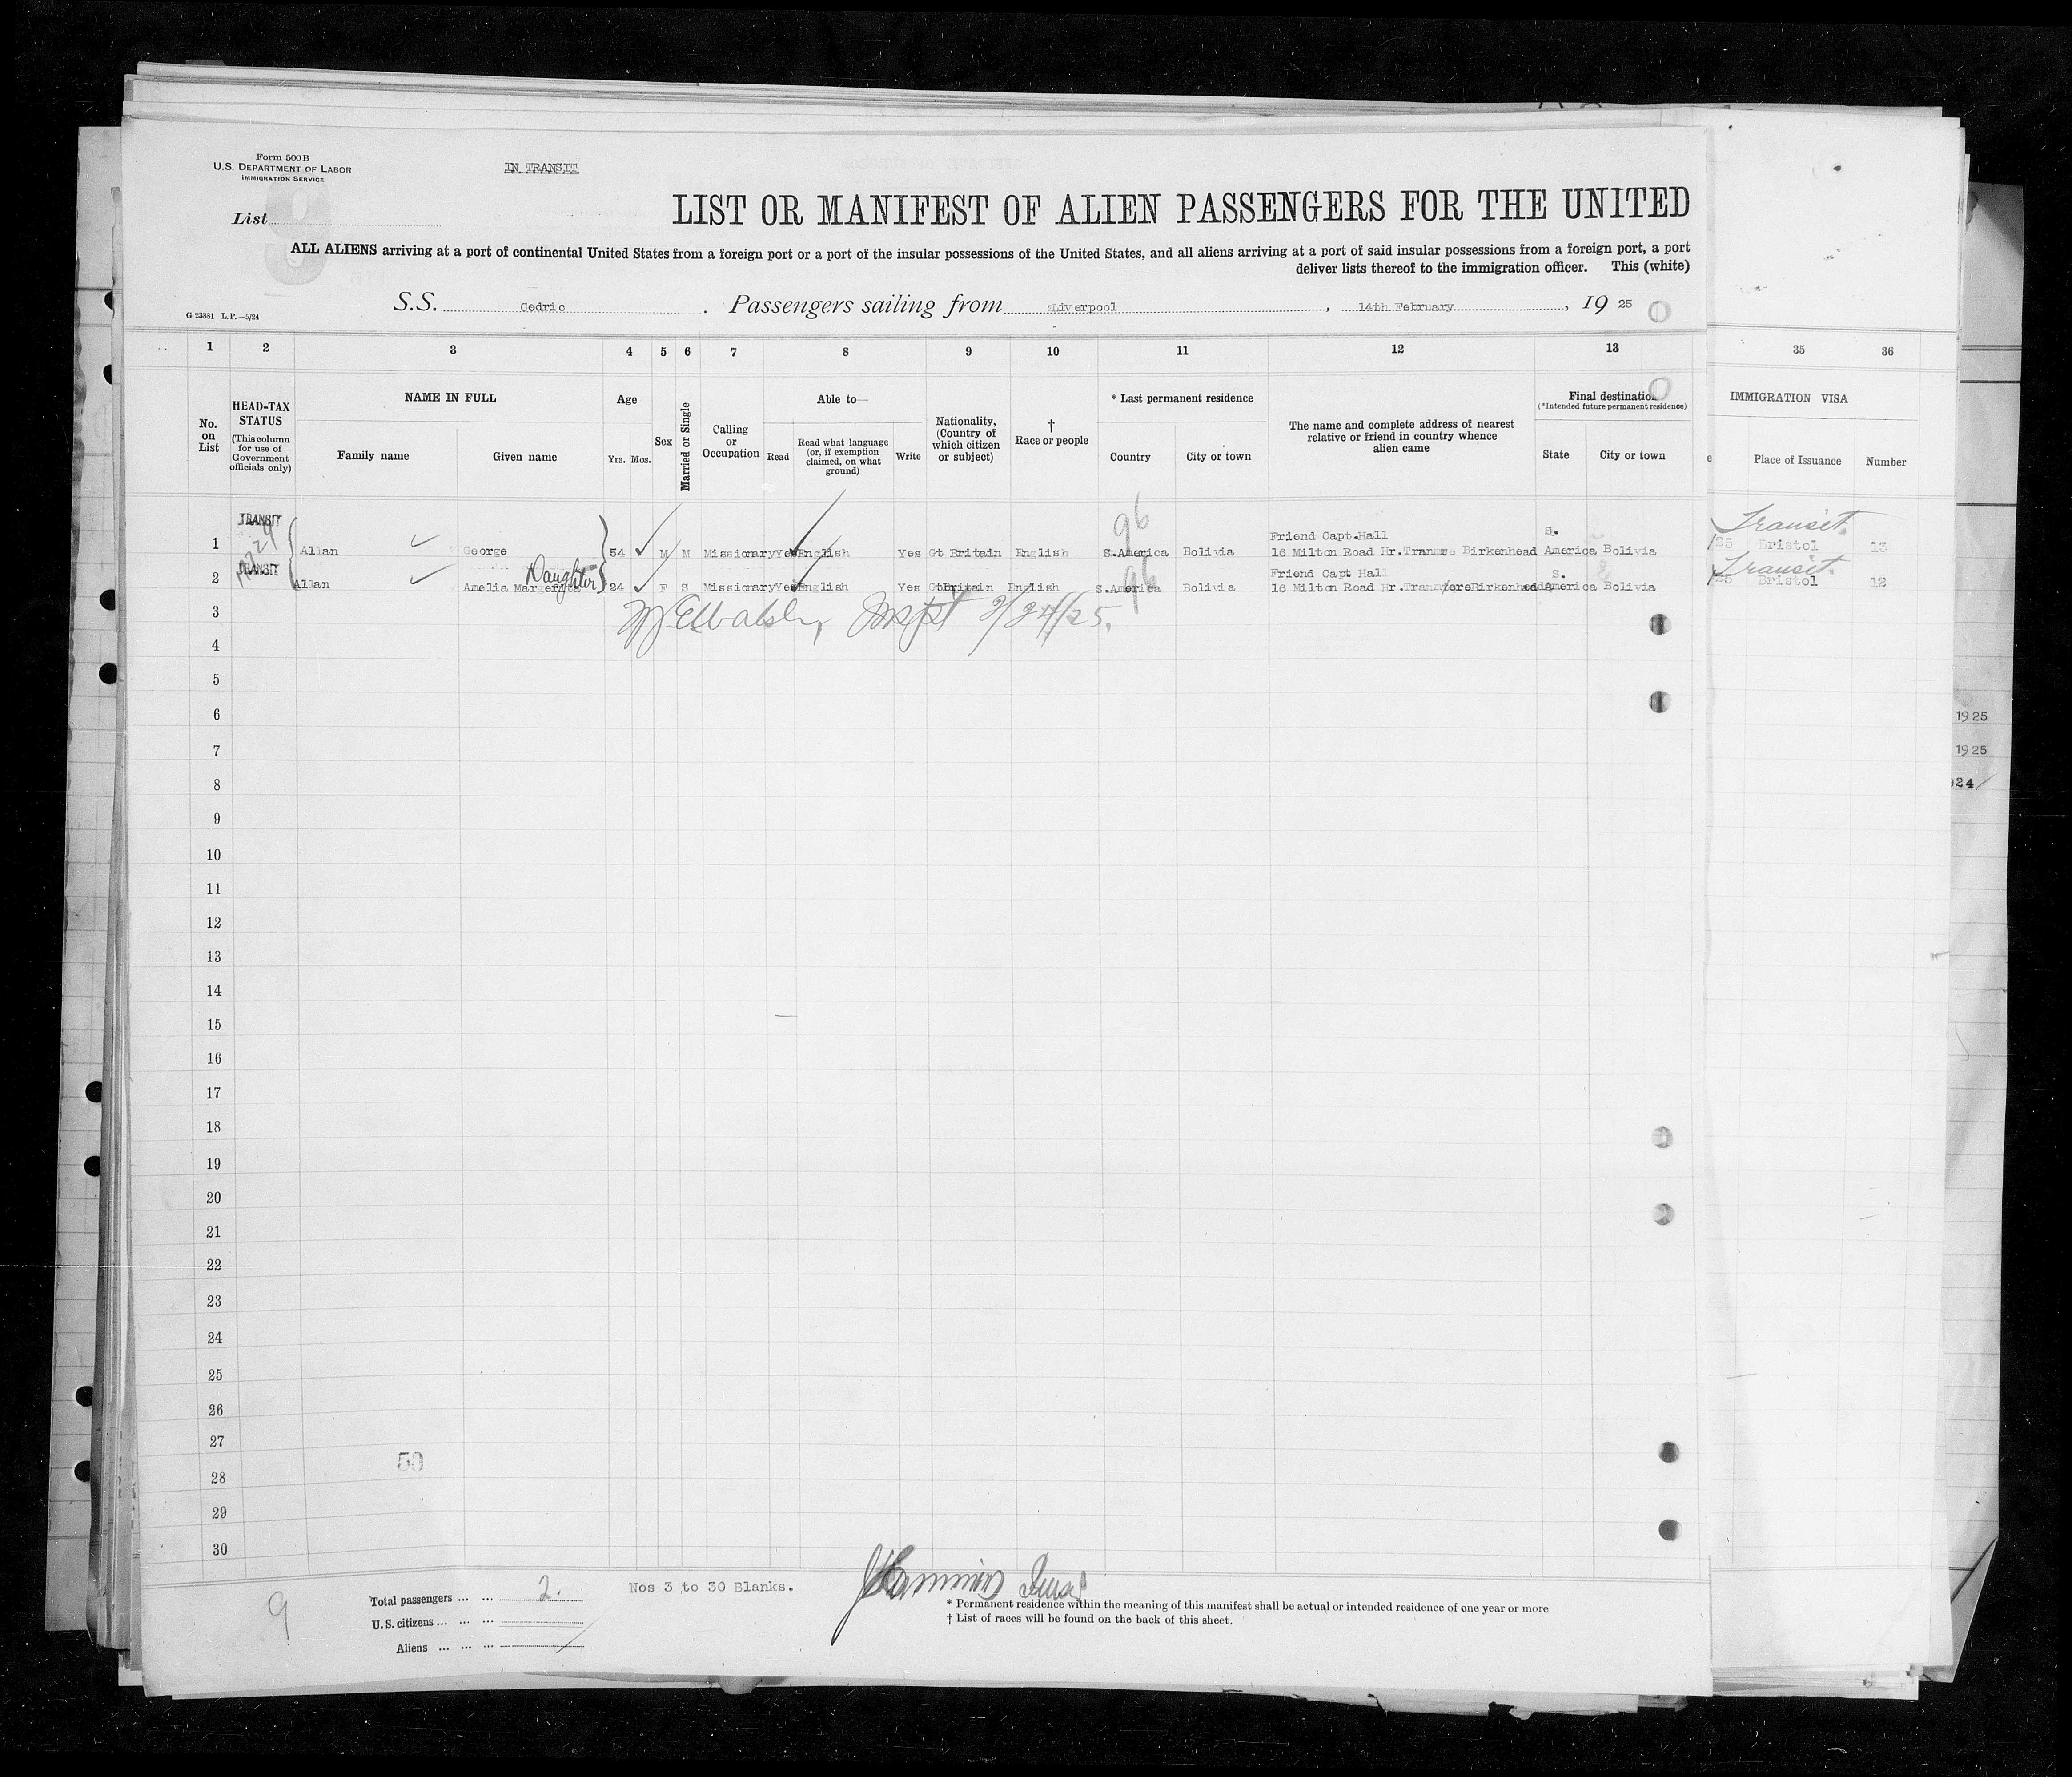 Form 500 B
U.S. DEPARTMENT OF LABOR
IMMIGRATION SERVICE
IN TRANSIT
List
LIST OR MANIFEST OF ALIEN PASSENGERS FOR THE UNITED
ALL ALIENS arriving at a port of continental United States from a foreign port or a port of the insular possessions of the United States, and all aliens arriving at a port of said insular possessions from a foreign port, a port
deliver lists thereof to the immigration officer. This (white)
G 23881 L.P.—5/24
S.S. Cedric. Passengers sailing from Liverpool, 14th February, 19 25
1 2 3 4 5 6 7 8 9 10 11 12 13 35 36
No. on List
HEAD-TAX STATUS
(This column for use of Government officials only)
NAME IN FULL
Family name
Given name
Age
Yrs. Mos.
Sex
Married or Single
Calling or Occupation
Able to—
Read
Read what language (or, if exemption claimed, on what ground)
Write
Nationality, (Country of which citizen or subject)
† Race or people
* Last permanent residence
Country
City or town
The name and complete address of nearest relative or friend in country whence alien came
Final destination
(*Intended future permanent residence)
State
City or town
IMMIGRATION VISA
Place of Issuance
Number
TRANSIT 96 Friend Capt.Hall S. Transit
1 Allan George 54 M M Missionary Yes English Yes Gt Britain English S.America Bolivia 16 Milton Road Hr.Tranmre Birkenhead America Bolivia /25 Bristol 13
TRANSIT Daughter 96 Friend Capt Hall S. Transit
2 Allan Amelia Margerita 24 F S Missionary Yes English Yes Gt Britain English S.America Bolivia 16 Milton Road Hr.Tranmere Birkenhead America Bolivia /25 Bristol 12
3
Inspt 2/24/25.
4
5
6
1925
7
1925
8
924
9
10
11
12
13
14
15
16
17
18
19
20
21
22
23
24
25
26
27
50
28
29
30
9
Total passengers ... ... 2.
Nos 3 to 30 Blanks.
U.S. citizens ... ... ...
Aliens ... ... ...
* Permanent residence within the meaning of this manifest shall be actual or intended residence of one year or more
† List of races will be found on the back of this sheet.